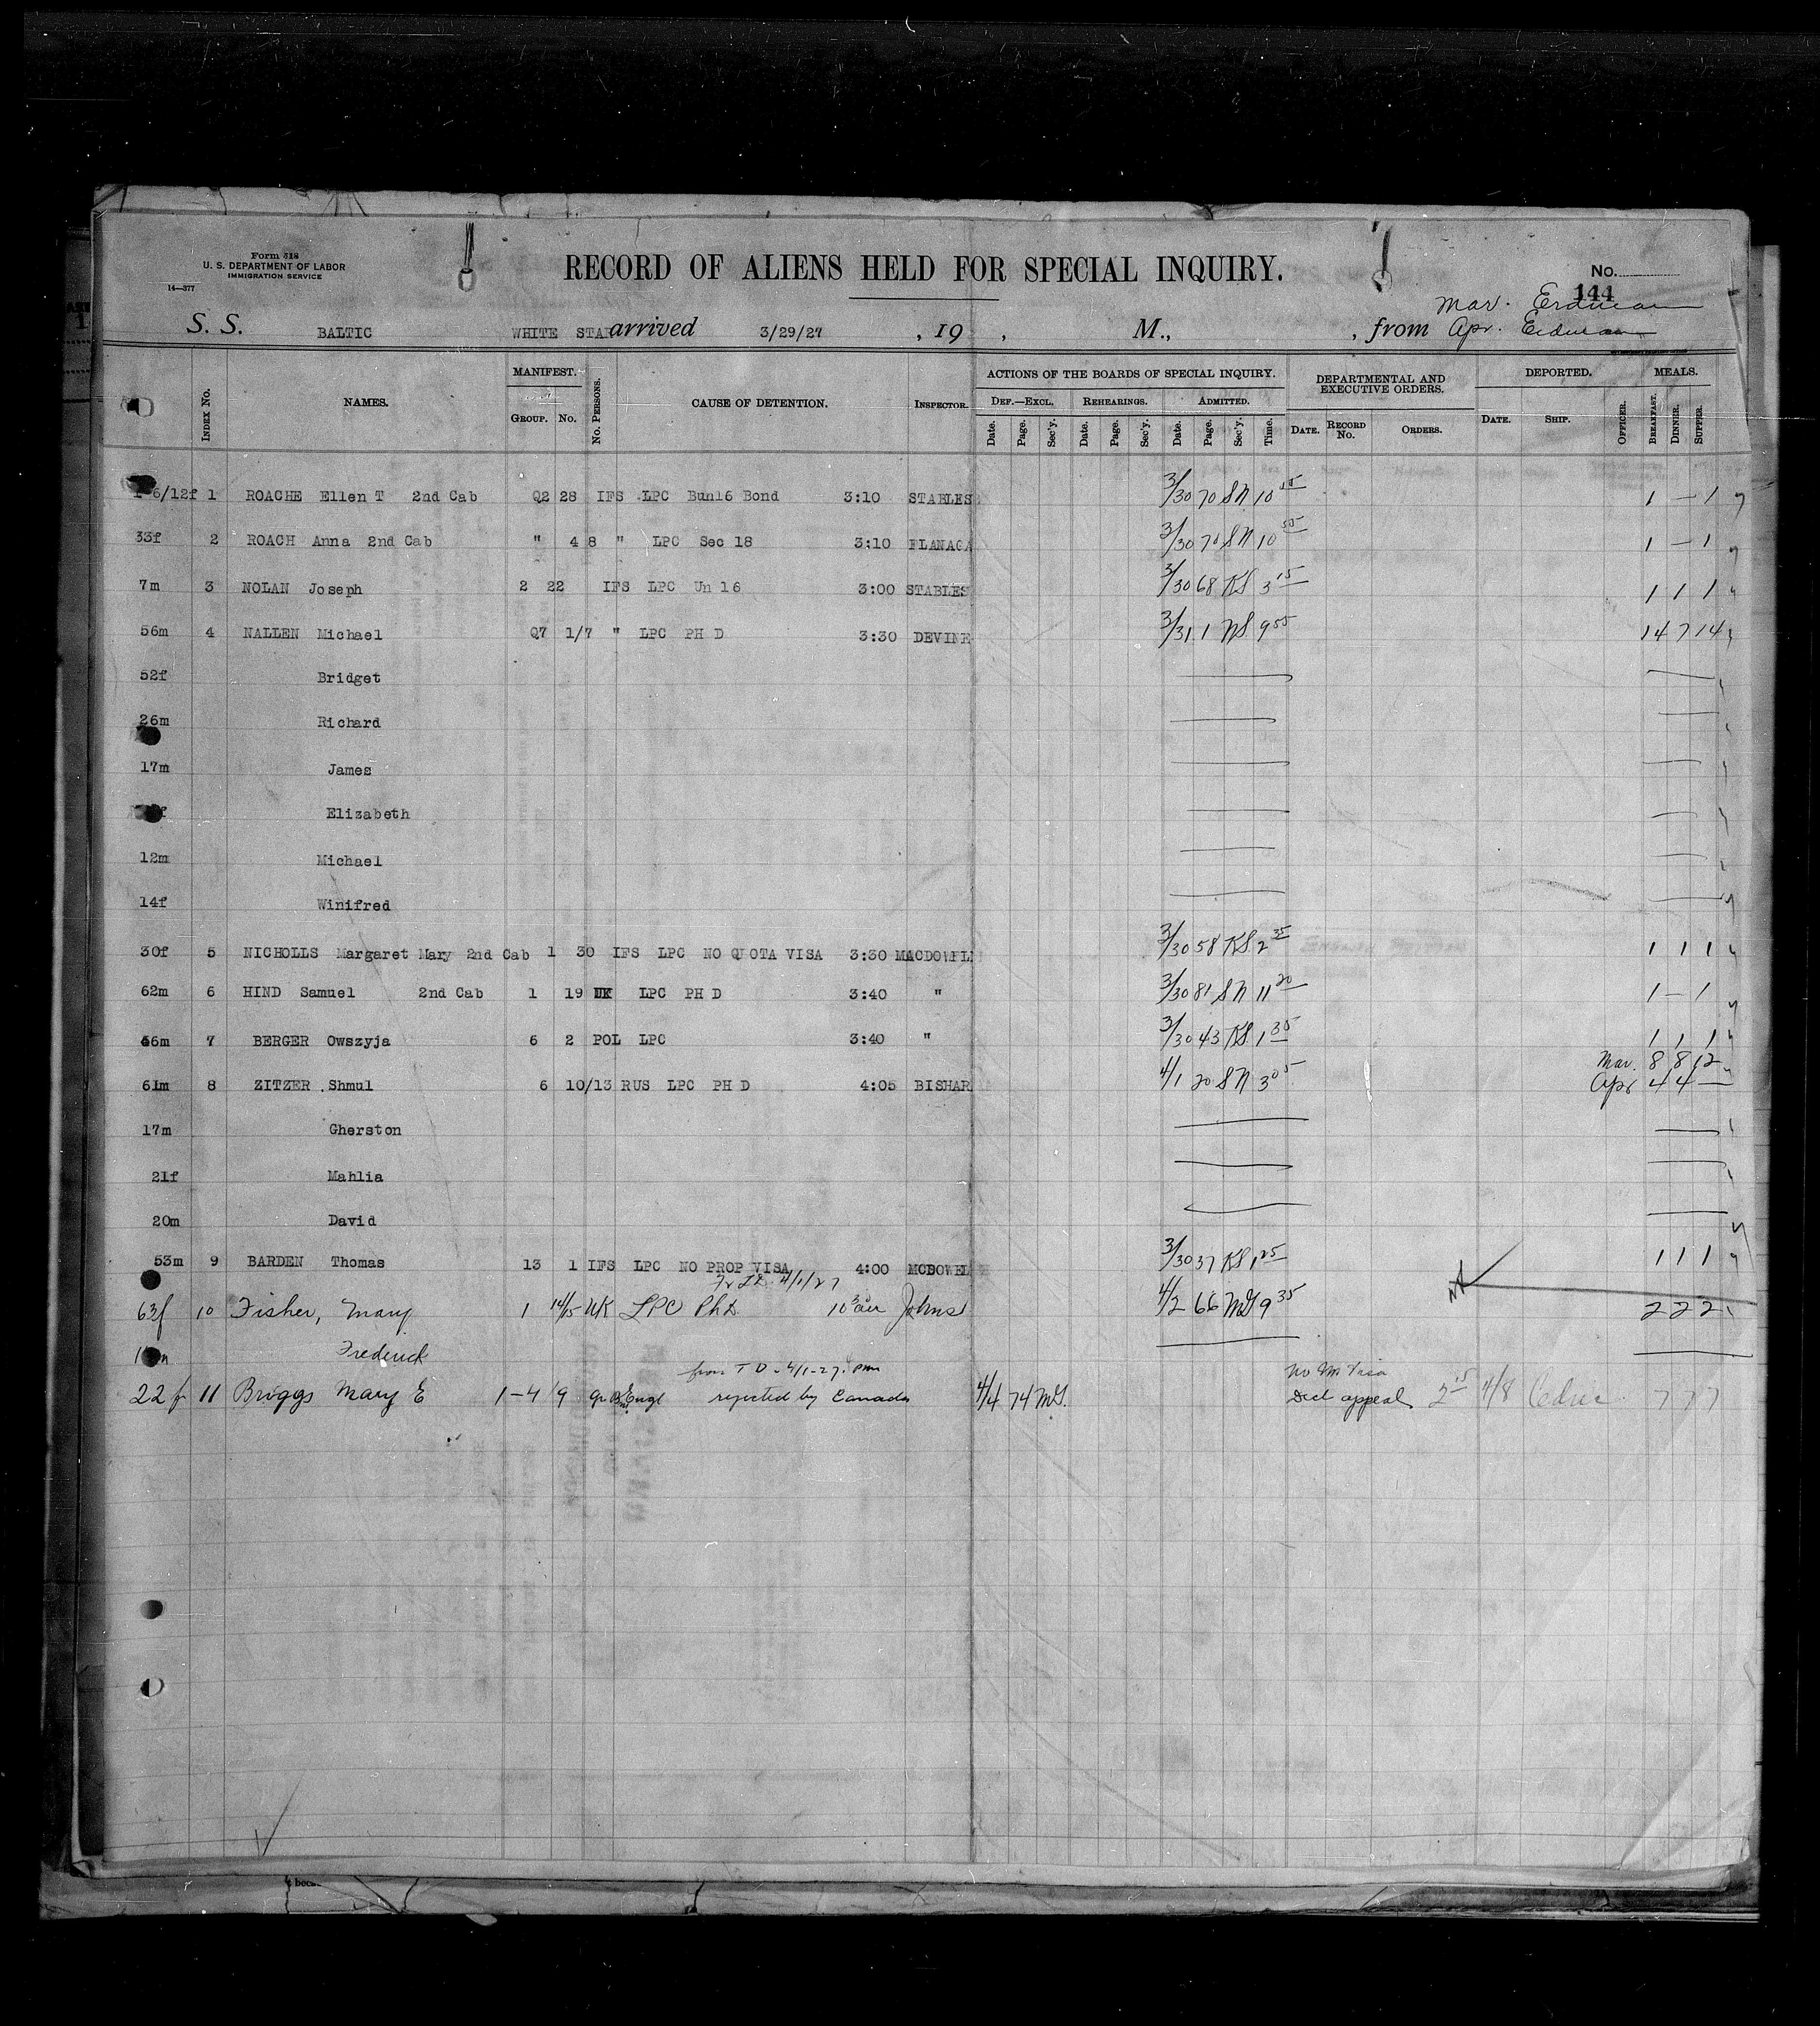 Form 518
U. S. DEPARTMENT OF LABOR
IMMIGRATION SERVICE
14—377
RECORD OF ALIENS HELD FOR SPECIAL INQUIRY.
No.
144
Mar. Erdman
S. S. BALTIC WHITE STAR arrived 3/29/27 , 19 , M., , from Apr. Erdman
INDEX No. NAMES. MANIFEST. GROUP. No. No. PERSONS. CAUSE OF DETENTION. INSPECTOR. ACTIONS OF THE BOARDS OF SPECIAL INQUIRY. DEF.—EXCL. Date. Page. Sec'y. REHEARINGS. Date. Page. Sec'y. ADMITTED. Date. Page. Sec'y. Time. DEPARTMENTAL AND EXECUTIVE ORDERS. DATE. RECORD No. ORDERS. DEPORTED. DATE. SHIP. OFFICER. MEALS. BREAKFAST. DINNER. SUPPER.
6/12f 1 ROACHE Ellen T 2nd Cab Q2 28 IFS LPC Bun16 Bond 3:10 STABLES 3/30 70 SN 10 1 — 1
33f 2 ROACH Anna 2nd Cab " 4 8 " LPC Sec 18 3:10 FLANAGA 3/30 70 SN 10 55 1 — 1
7m 3 NOLAN Joseph 2 22 IFS LPC Un 16 3:00 STABLES 3/30 68 KS 3 15 1 1 1
56m 4 NALLEN Michael Q7 1/7 " LPC PH D 3:30 DEVINE 3/31 1 NS 9 55 14 7 14
52f Bridget
26m Richard
17m James
Elizabeth
12m Michael
14f Winifred
30f 5 NICHOLLS Margaret Mary 2nd Cab 1 30 IFS LPC NO QUOTA VISA 3:30 MACDOWEL 3/30 58 KS 2 35 1 1 1
62m 6 HIND Samuel 2nd Cab 1 19 UK LPC PH D 3:40 " 3/30 81 SN 11 20 1 — 1
46m 7 BERGER Owszyja 6 2 POL LPC 3:40 " 3/30 43 KS 1 35 1 1 1
Mar. 8 8 12
61m 8 ZITZER Shmul 6 10/13 RUS LPC PH D 4:05 BISHAR 4/1 20 SN 3 05 Apr 4 4 —
17m Gherston
21f Mahlia
20m David
53m 9 BARDEN Thomas 13 1 IFS LPC NO PROP VISA 4:00 MCDOWEL 3/30 37 KS 1 25 1 1 1
4/1/27
63f 10 Fisher, Mary 1 14/15 UK LPC PhD 10 30 am Johns 4/2 66 MG 9 35 2 2 2
Frederick
from T D - 4/1-27. pm No Visa
22 f 11 Briggs Mary E 1-4 9 Engl rejected by Canada 4/4 74 MG. Decl appeal 2 15 4/8 Cedric 7 7 7